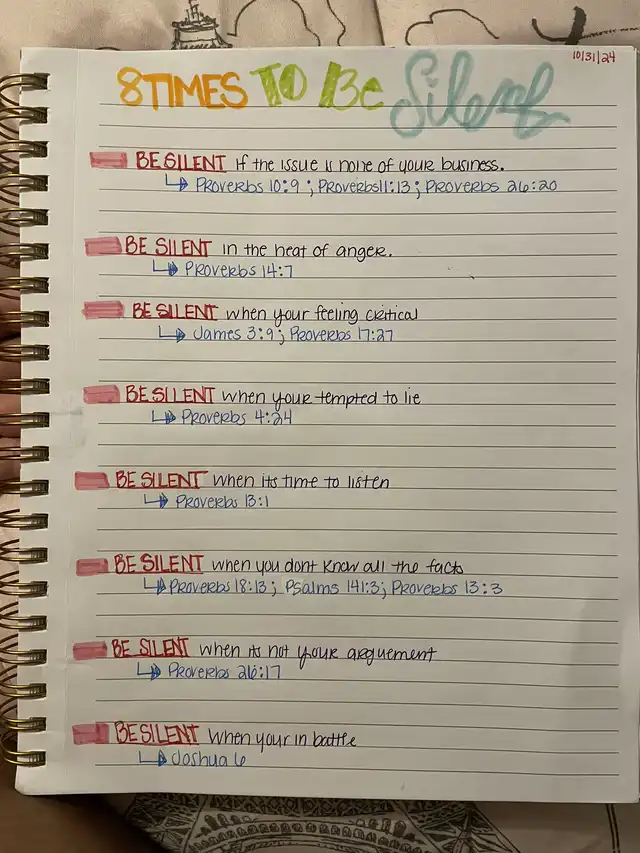 10/31/24
8 TIMES TO Be Silent
BE SILENT if the issue is none of your business.
Proverbs 10:9 ; Proverbs 11:13 ; Proverbs 26:20
BE SILENT in the heat of anger.
Proverbs 14:7
BE SILENT when your feeling critical
James 3:9 ; Proverbs 17:27
BE SILENT when your tempted to lie
Proverbs 4:24
BE SILENT when its time to listen
Proverbs 13:1
BE SILENT when you dont know all the facts
Proverbs 18:13 ; Psalms 141:3 ; Proverbs 13:3
BE SILENT when its not your arguement
Proverbs 26:17
BE SILENT when your in battle
Joshua 6